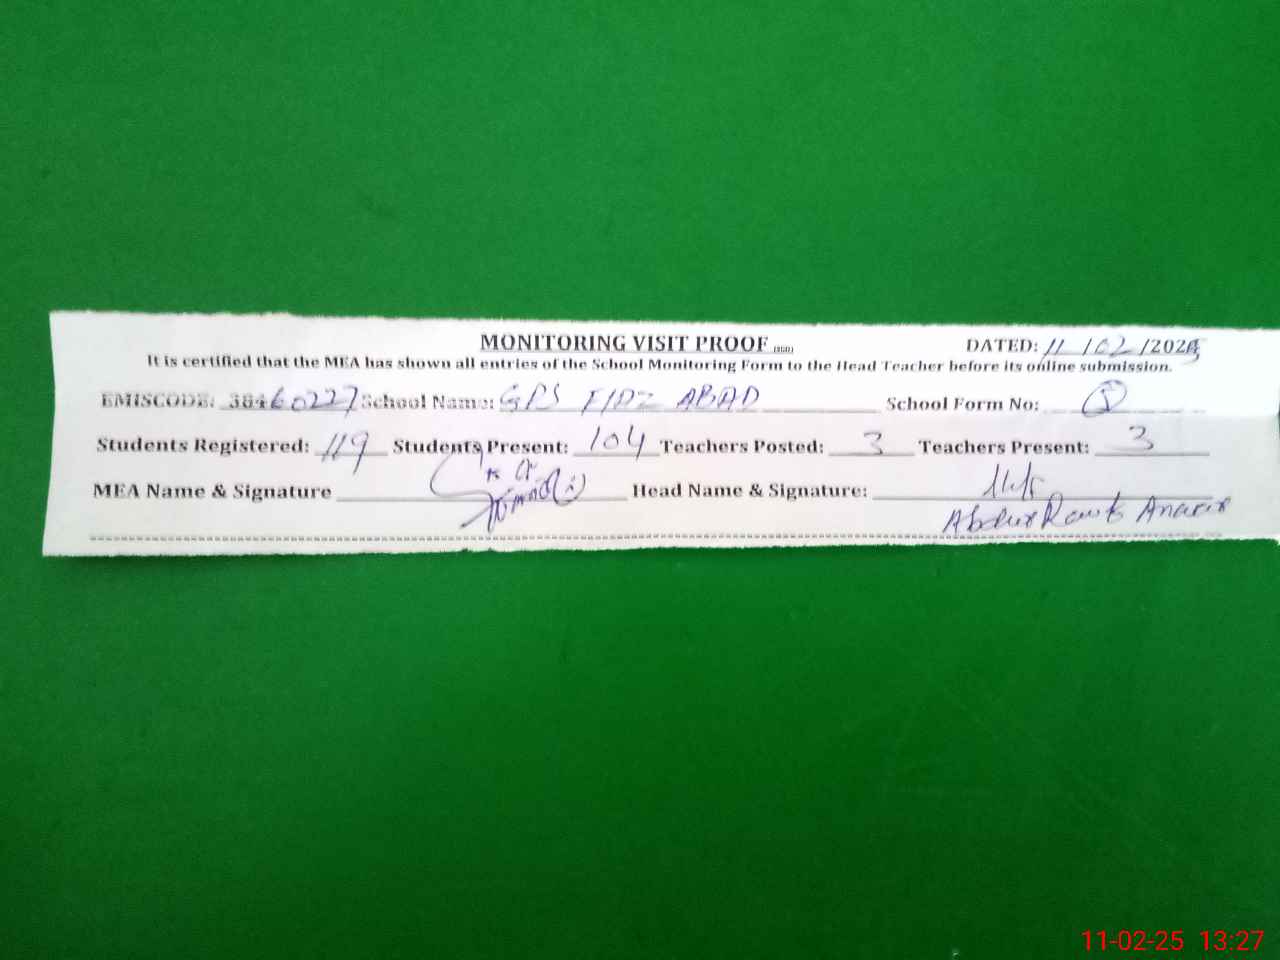 MONITORING VISIT PROOF
DATED: 11/02/2025
It is certified that the MEA has shown all entries of the School Monitoring Form to the Head Teacher before its online submission.
EMISCODE: 38460227 School Name: GPS ABAD School Form No: 5
Students Registered: 119 Students Present: 104 Teachers Posted: 3 Teachers Present: 3
MEA Name & Signature Head Name & Signature:
11-02-25 13:27